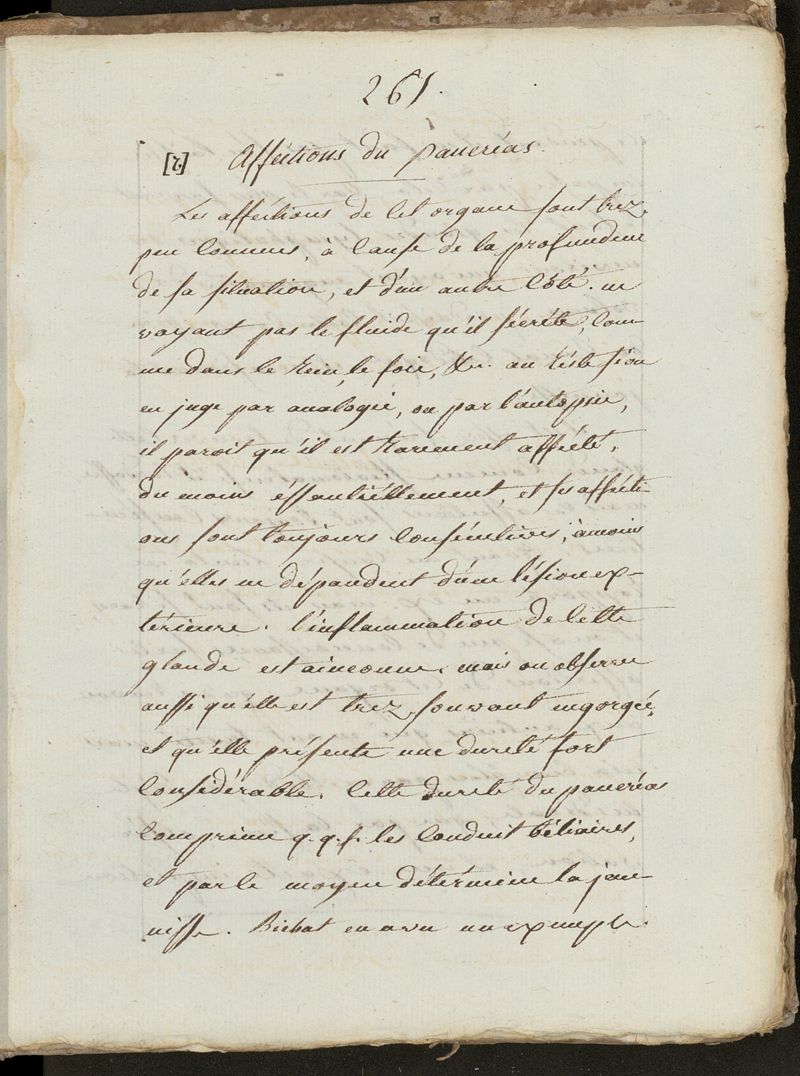 261.
[2] Afféctions du pancréas.
Les afféctions de cet organe sont trez
peu connues, à cause de la profondeur
de sa situation, et d'un autre côté. ne
voyant pas le fluide qu'il sécréte, com-
me dans le Rein, le foie, &c. au Réste si on
en juge par analogie, ou par l'autopsie,
il paroit qu'il est Rarement affécté,
du moins éssentiéllement, et ses affécti
ons sont toujours consécutives, à moins
qu'elles ne dépendent d'une lésion ex-
térieure. l'inflammation de cette
glande est inconnue. mais on observe
aussi qu'elle est trez souvent engorgée,
et qu'elle présente une dureté fort
considérable. Cette dureté du pancréas
comprime q.q.f. les conduit biliaires,
et par ce moyen détérmine la jau-
nisse. Bichat en a vu un exemple.